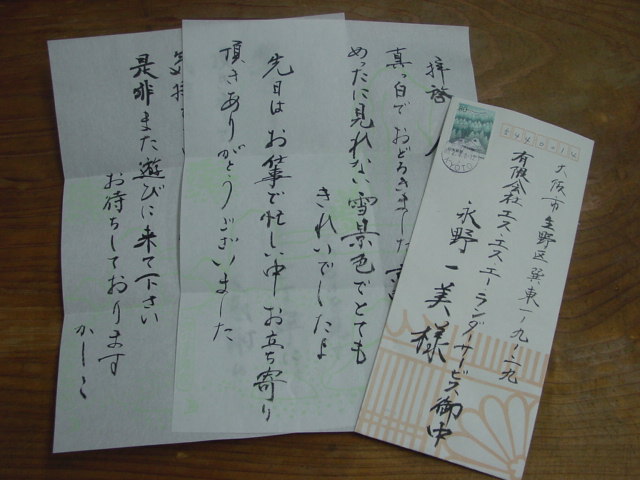 拝啓
真っ白でおどろきました
めったに見れない雪景色でとても
きれいでしたよ
先日はお仕事で忙しい中お立ち寄り
頂きありがとうございました
是非また遊びに来て下さい
お待ちしております
かしこ
大阪市生野区巽東一ノ九ノ二九
有限会社エスエスエーランダーサービス御中
永野一美様